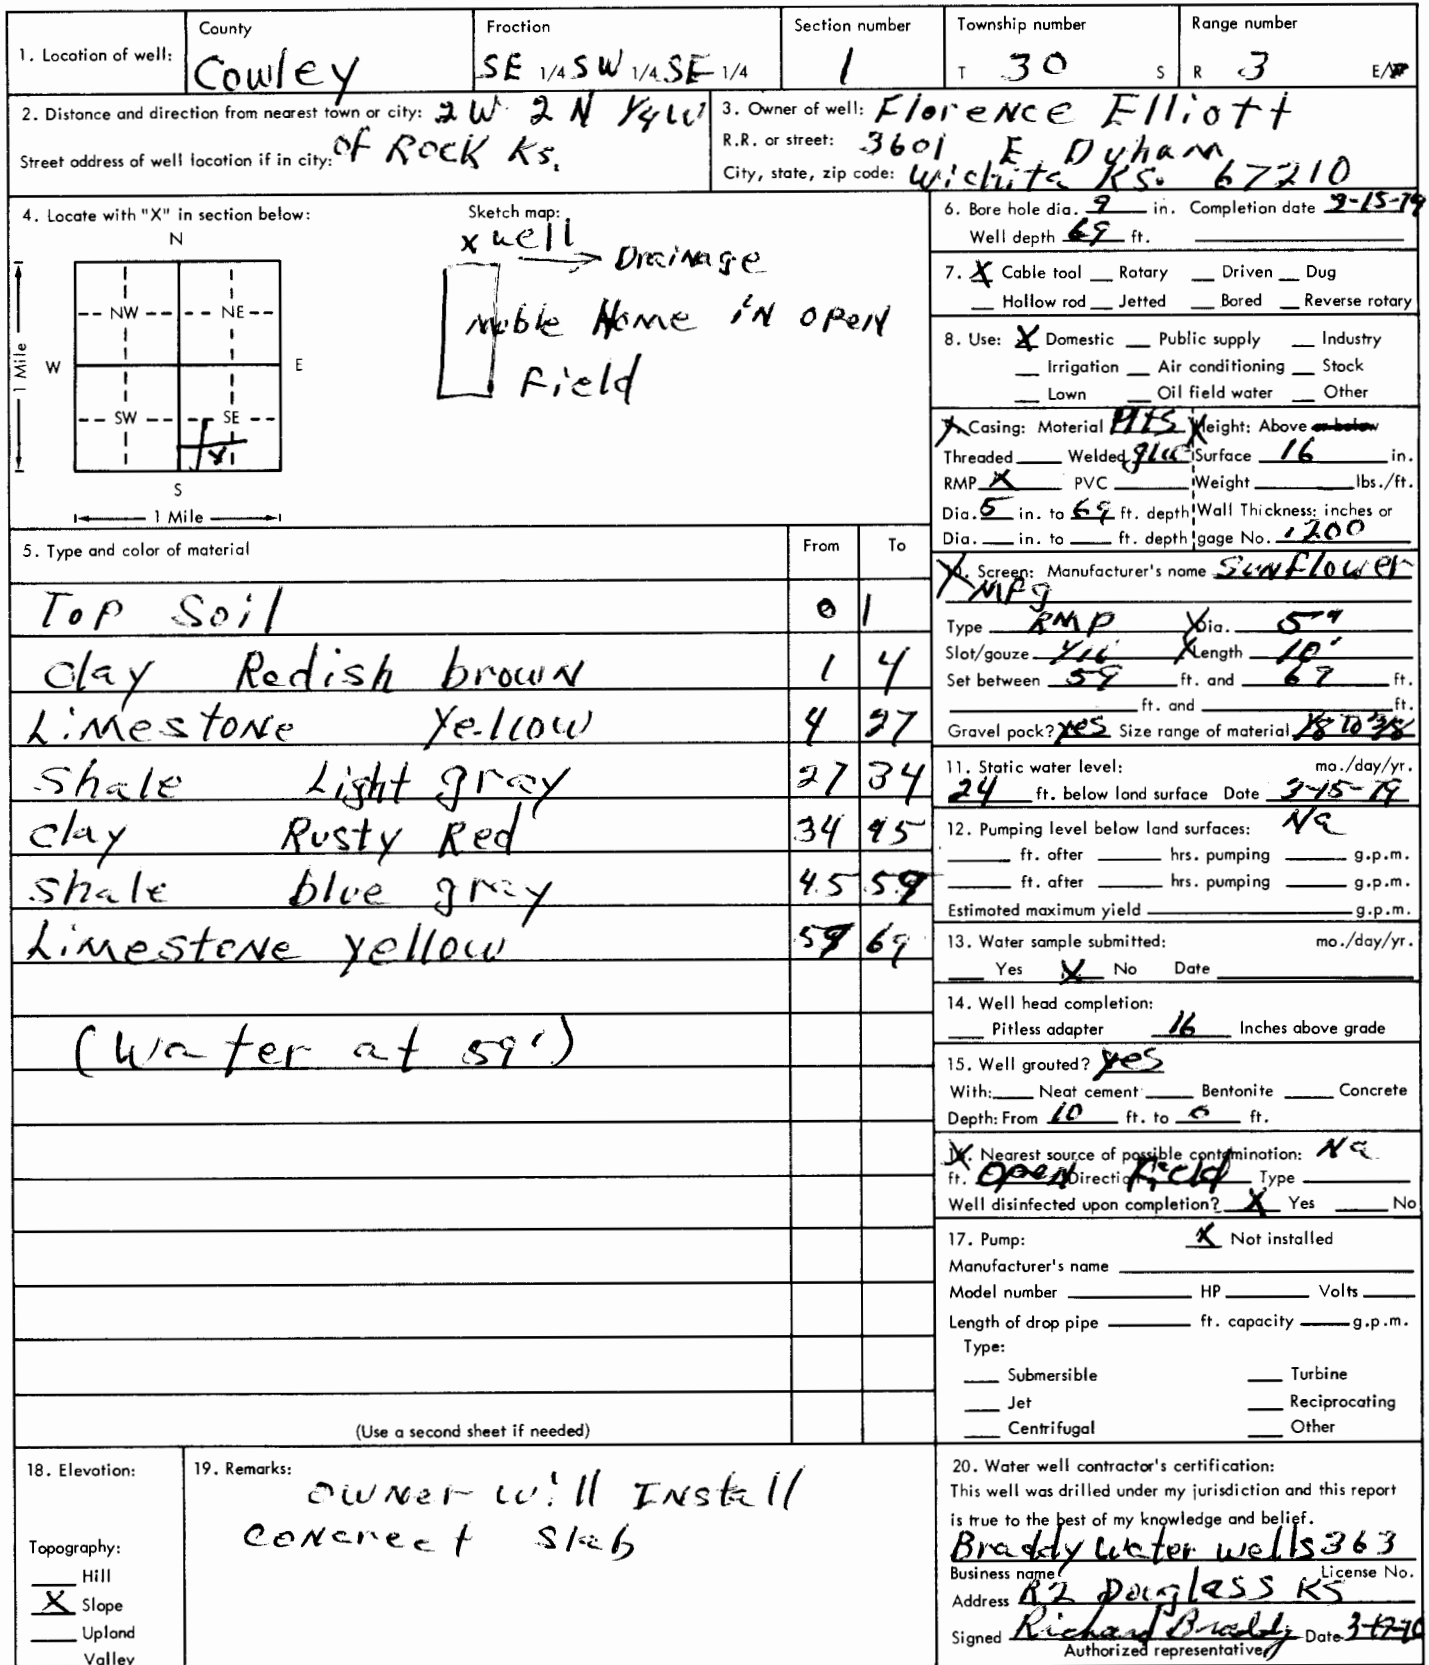 1. Location of well:
County
Cowley
Fraction
SE 1/4 SW 1/4 SE 1/4
Section number
1
Township number
T 30 S
Range number
R 3 E/W
2. Distance and direction from nearest town or city: 2W 2N 1/4W
of Rock Ks.
Street address of well location if in city:
3. Owner of well: Florence Elliott
R.R. or street: 3601 E. Dyham
City, state, zip code: Wichita Ks. 67210
4. Locate with "X" in section below:
N
NW NE
W E
SW SE
X
S
1 Mile
1 Mile
Sketch map:
x well
Drainage
Moble Home in open
Field
5. Type and color of material From To
Top Soil 0 1
Clay Redish brown 1 4
Limestone Yellow 4 27
Shale Light gray 27 34
Clay Rusty Red 34 45
Shale blue gray 45 59
Limestone yellow 59 69
(Water at 59')
(Use a second sheet if needed)
6. Bore hole dia. 9 in. Completion date 3-15-79
Well depth 69 ft.
7. X Cable tool Rotary Driven Dug
Hollow rod Jetted Bored Reverse rotary
8. Use: X Domestic Public supply Industry
Irrigation Air conditioning Stock
Lawn Oil field water Other
Casing: Material Height: Above or below
Threaded Welded glue Surface 16 in.
RMP X PVC Weight lbs./ft.
Dia. 5 in. to 69 ft. depth Wall Thickness: inches or
Dia. in. to ft. depth gage No. .200
Screen: Manufacturer's name Sunflower
Mfg
Type RMP Dia. 5"
Slot/gauze Length 10'
Set between 59 ft. and 69 ft.
ft. and ft.
Gravel pack? yes Size range of material 1/8 to 3/8
11. Static water level: mo./day/yr.
24 ft. below land surface Date 3-15-79
12. Pumping level below land surfaces: Na
ft. after hrs. pumping g.p.m.
ft. after hrs. pumping g.p.m.
Estimated maximum yield g.p.m.
13. Water sample submitted: mo./day/yr.
Yes X No Date
14. Well head completion:
Pitless adapter 16 Inches above grade
15. Well grouted? yes
With: Neat cement Bentonite Concrete
Depth: From 10 ft. to 0 ft.
16. Nearest source of possible contamination: Na
ft. open Direction Field Type
Well disinfected upon completion? X Yes No
17. Pump: X Not installed
Manufacturer's name
Model number HP Volts
Length of drop pipe ft. capacity g.p.m.
Type:
Submersible Turbine
Jet Reciprocating
Centrifugal Other
18. Elevation:
Topography:
Hill
X Slope
Upland
Valley
19. Remarks:
Owner will Install
Concreet Slab
20. Water well contractor's certification:
This well was drilled under my jurisdiction and this report
is true to the best of my knowledge and belief.
Braddy Water Wells 363
Business name License No.
Address R2 Douglass Ks
Signed Richard Braddy Date
Authorized representative